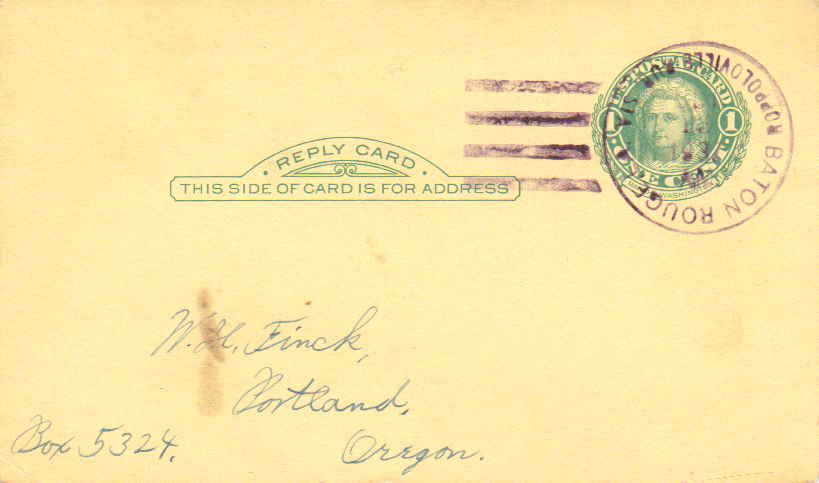 REPLY CARD
THIS SIDE OF CARD IS FOR ADDRESS
U.S. POSTAL CARD
1 1
ONE CENT
WASHINGTON
BATON ROUGE
ROPPOLOVILLE
RUR STA
W. H. Finck,
Portland,
Box 5324.
Oregon.